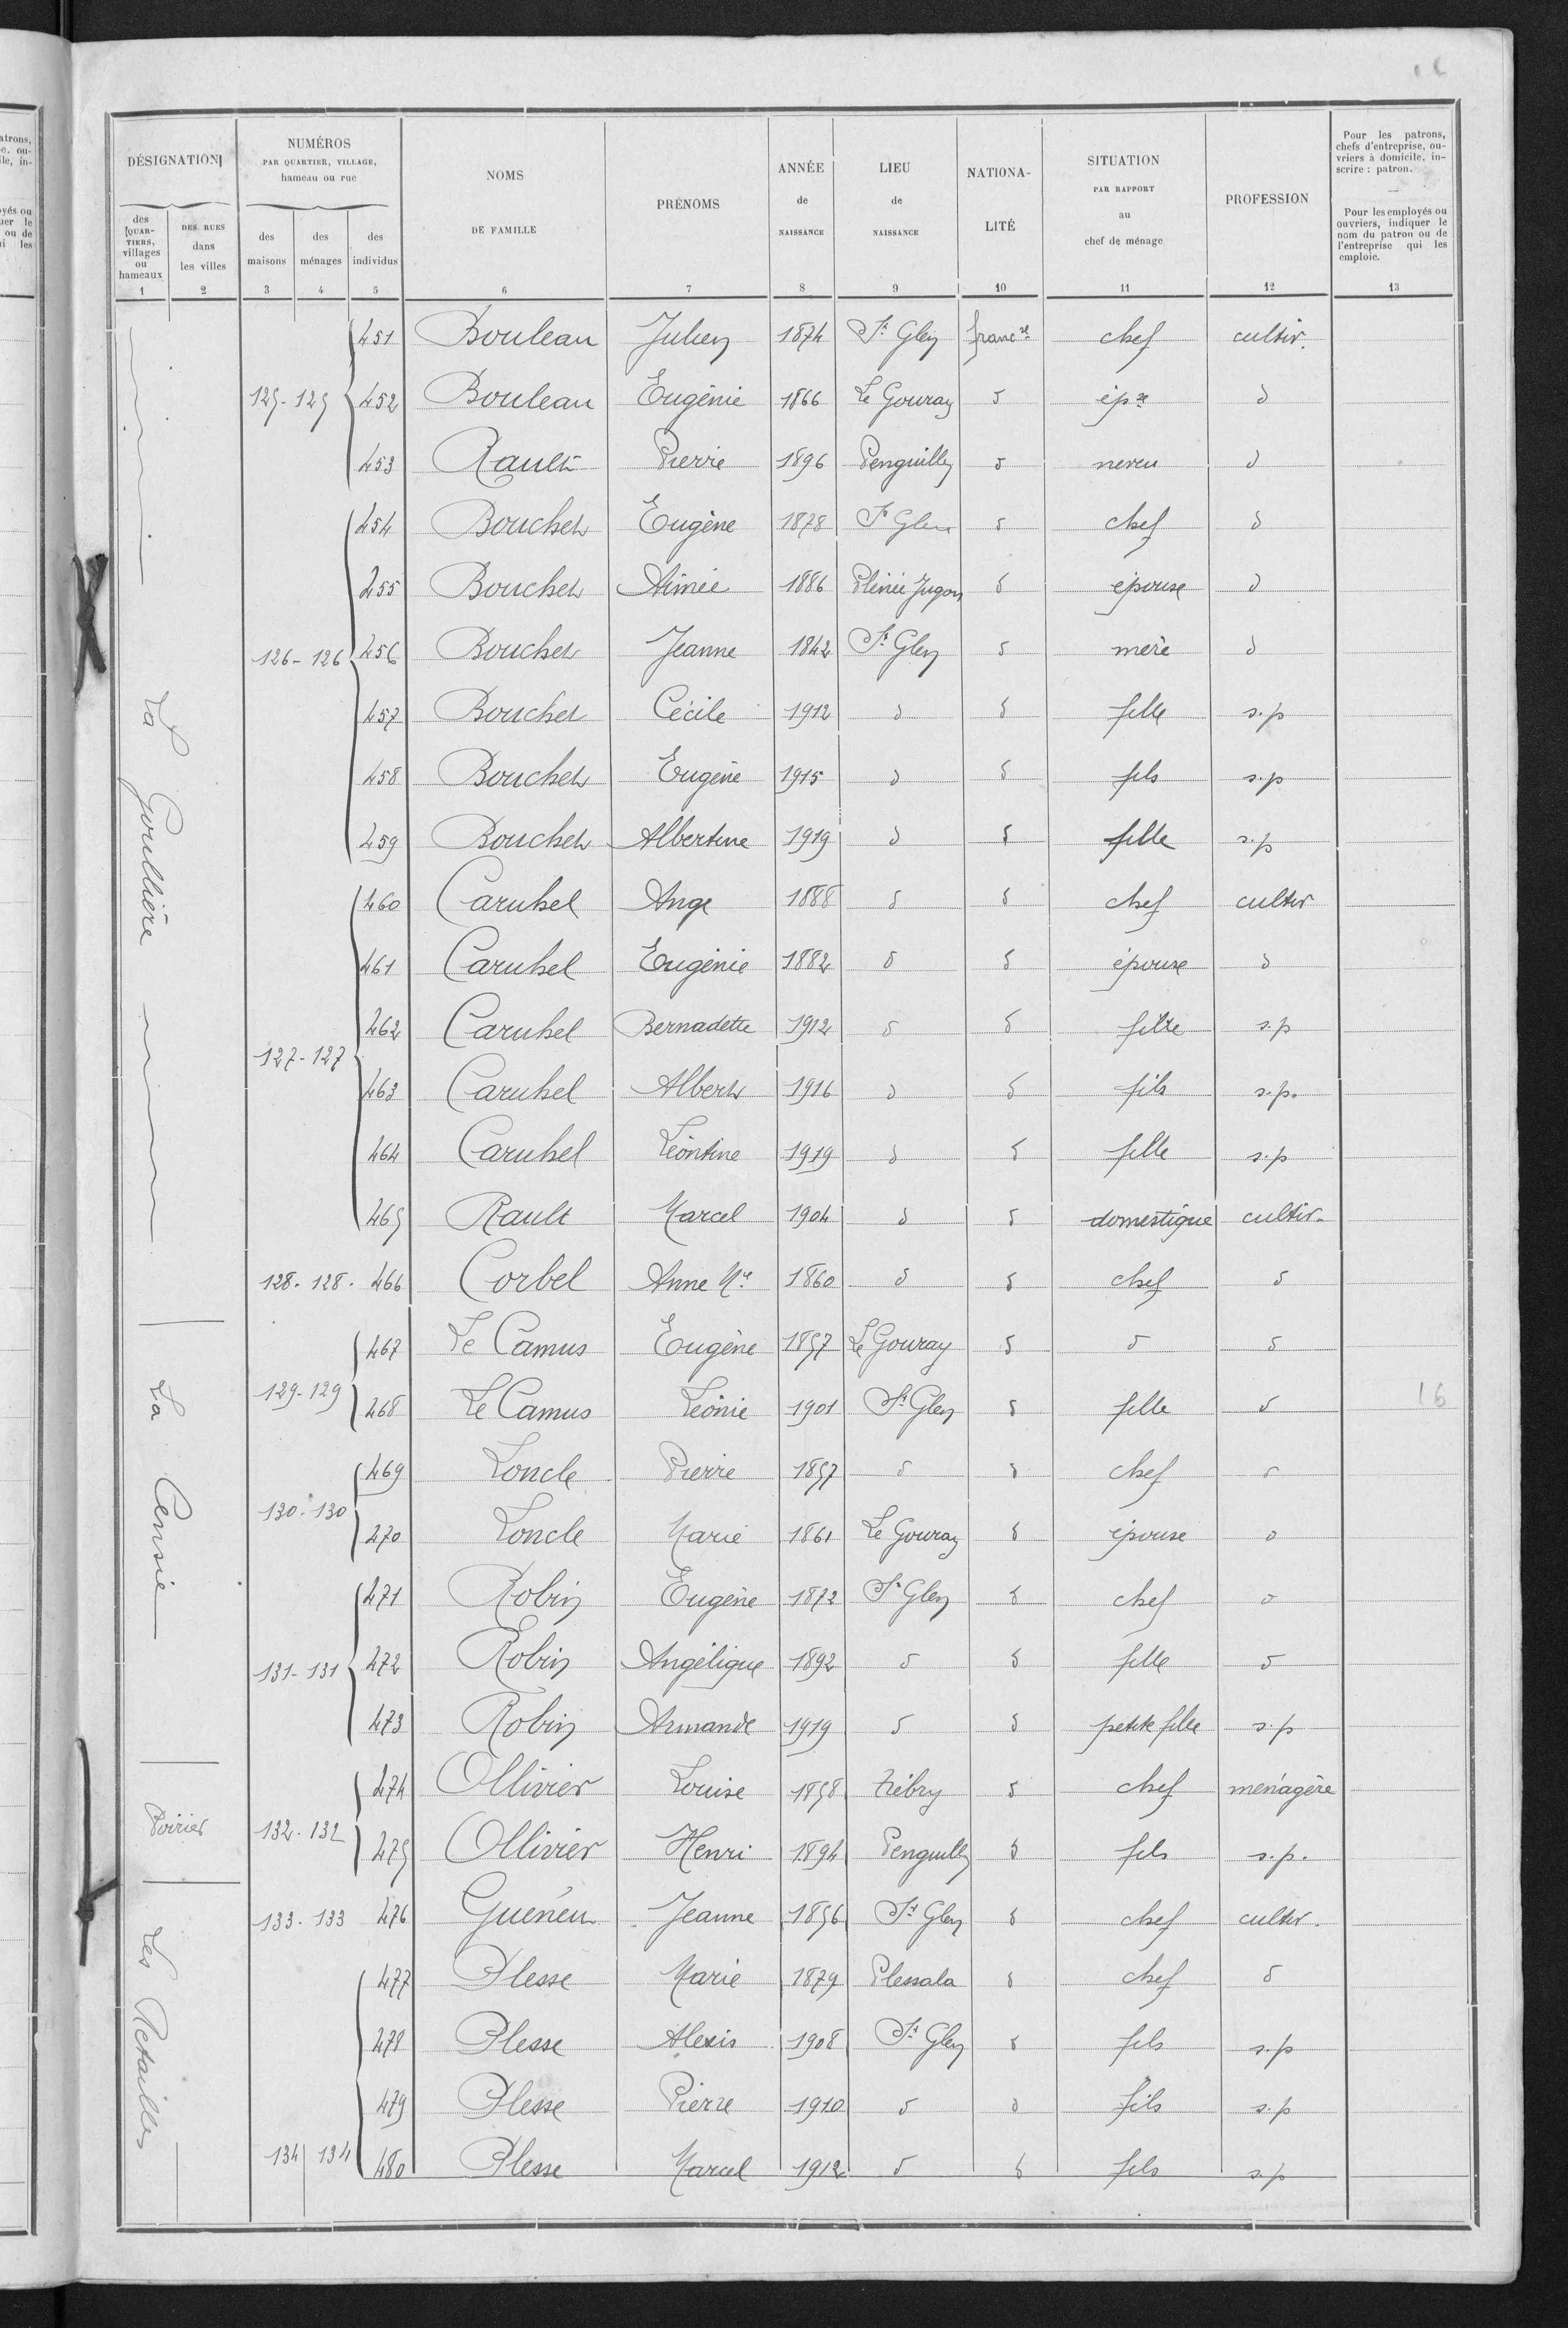 DÉSIGNATION
NUMÉROS
PAR QUARTIER, VILLAGE,
hameau ou rue
NOMS
DE FAMILLE
PRÉNOMS
ANNÉE
de
NAISSANCE
LIEU
de
NAISSANCE
NATIONA-
LITÉ
SITUATION
PAR RAPPORT
au
chef de ménage
PROFESSION
Pour les patrons,
chefs d'entreprise, ou-
vriers à domicile, in-
scrire : patron.
—
Pour les employés ou
ouvriers, indiquer le
nom du patron ou de
l'entreprise qui les
emploie.
des
QUAR-
TIERS,
villages
ou
hameaux
DES RUES
dans
les villes
des
maisons
des
ménages
des
individus
1 2 3 4 5 6 7 8 9 10 11 12 13
451 Bouleau Julien 1874 St Glen franc se chef cultiv.
125-125 452 Bouleau Eugénie 1866 Le Gouray d ép se d
453 Rault Pierre 1896 Penguilly d neveu d
454 Bouchet Eugène 1878 St Glen d chef d
255 Bouchet Aimée 1886 Plénée Jugon d épouse d
126-126 456 Bouchet Jeanne 1842 St Glen d mère d
457 Bouchet Cécile 1912 d d fille s.p
458 Bouchet Eugène 1915 d d fils s.p
459 Bouchet Albertine 1919 d d fille s.p
460 Caruhel Ange 1888 d d chef cultiv
461 Caruhel Eugénie 1882 d d épouse d
462 Caruhel Bernadette 1912 d d fille s.p
127-127
463 Caruhel Albert 1916 d d fils s.p.
464 Caruhel Léontine 1919 d d fille s.p
465 Rault Marcel 1904 d d domestique cultiv.
128. 128. 466 Corbel Anne Me 1860 d d chef d
467 Le Camus Eugène 1857 Le Gouray d d d
129-129 468 Le Camus Léonie 1901 St Glen d fille d
16
469 Loncle Pierre 1857 d d chef d
130-130
470 Loncle Marie 1861 Le Gouray d épouse d
471 Robin Eugène 1872 St Glen d chef d
131-131 472 Robin Angélique 1892 d d fille d
473 Robin Armande 1919 d d petite fille s.p
474 Ollivier Louise 1858 Trébry d chef ménagère
132. 132 475 Ollivier Henri 1894 Penguilly d fils s.p.
133. 133 476 Guénéu Jeanne 1856 St Glen d chef cultiv.
477 Plesse Marie 1879 Plessala d chef d
478 Plesse Alexis 1908 St Glen d fils s.p
479 Plesse Pierre 1910 d d fils s.p
134 134 480 Plesse Marcel 1912 d d fils s.p
La Goullière
La Censie
Poirier
Les Retailles